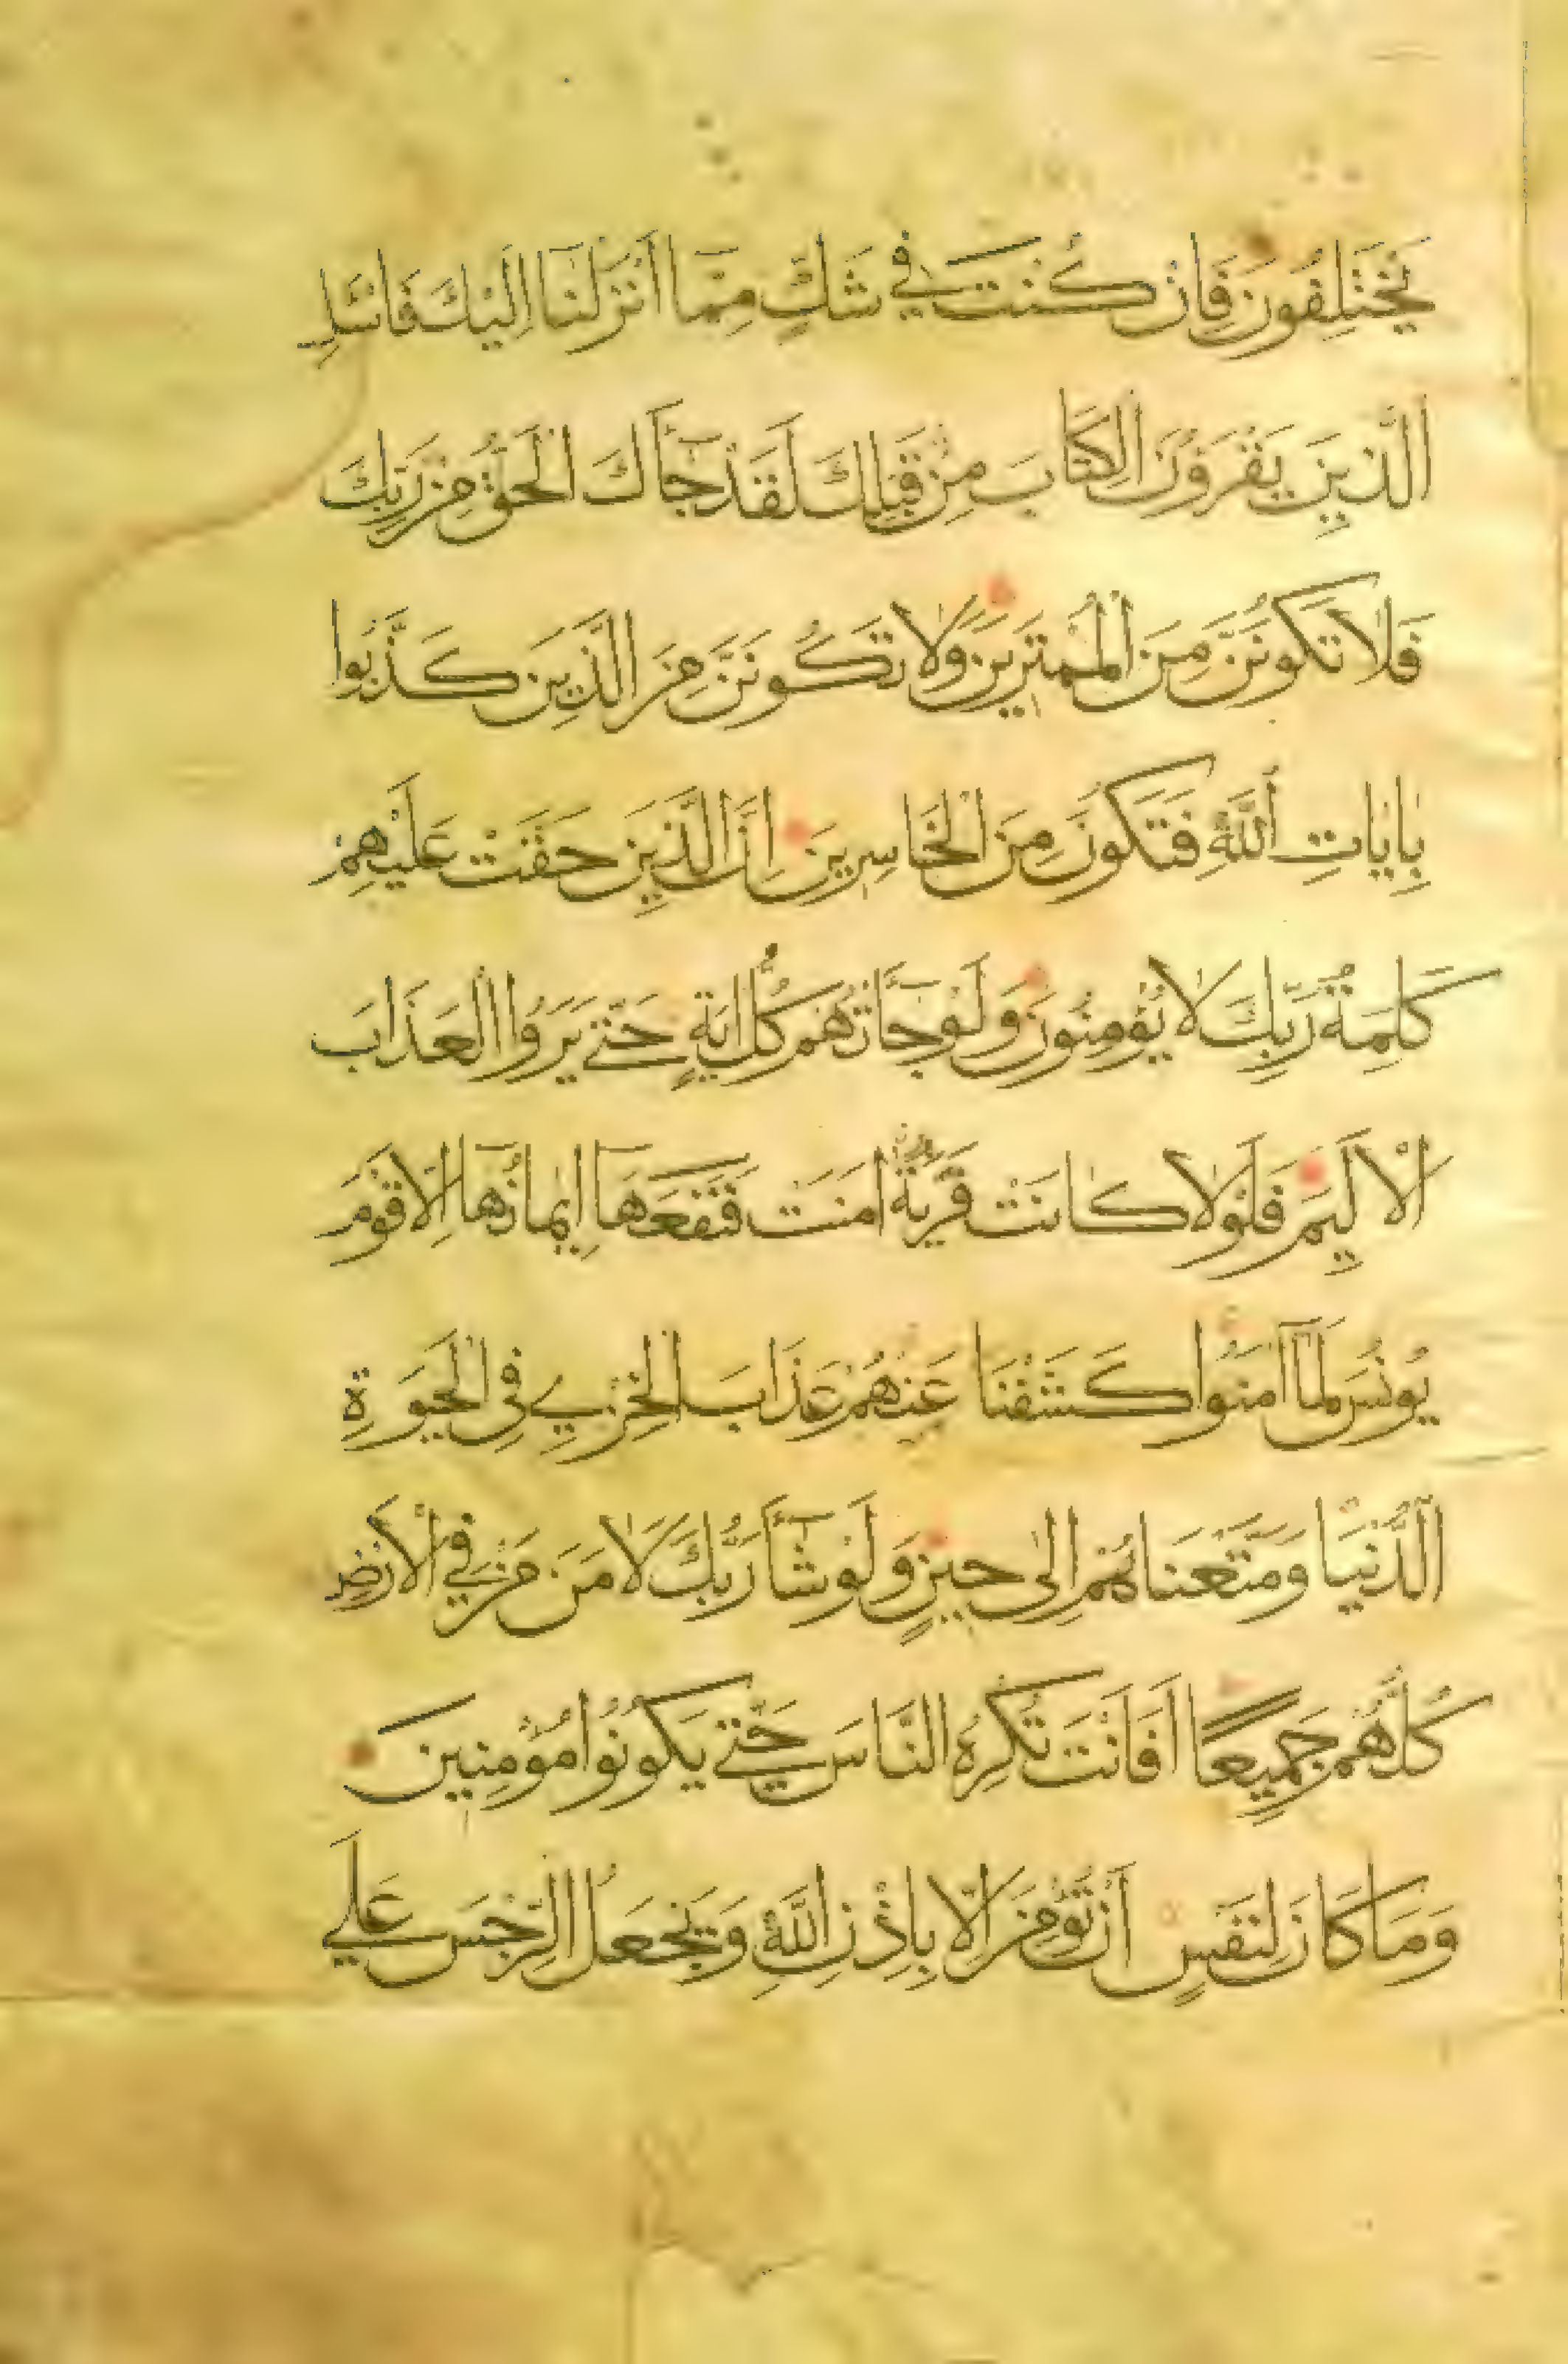 يَخْتَلِفُونَ فَاِنْ كُنْتَ فِي شَكٍّ مِمَّا اَنْزَلْنَا اِلَيْكَ فَاسْئَلِ
الَّذِينَ يَقْرَؤُنَ الْكِتَابَ مِنْ قَبْلِكَ لَقَدْ جَآءَكَ الْحَقُّ مِنْ رَبِّكَ
فَلَا تَكُونَنَّ مِنَ الْمُمْتَرِينَ وَلَا تَكُونَنَّ مِنَ الَّذِينَ كَذَّبُوا
بِاٰيَاتِ اللّٰهِ فَتَكُونَ مِنَ الْخَاسِرِينَ اِنَّ الَّذِينَ حَقَّتْ عَلَيْهِمْ
كَلِمَةُ رَبِّكَ لَا يُؤْمِنُونَ وَلَوْ جَآءَتْهُمْ كُلُّ اٰيَةٍ حَتّٰي يَرَوُا الْعَذَابَ
الْاَلِيمَ فَلَوْلَا كَانَتْ قَرْيَةٌ اٰمَنَتْ فَنَفَعَهَا اِيمَانُهَا اِلَّا قَوْمَ
يُونُسَ لَمَّا اٰمَنُوا كَشَفْنَا عَنْهُمْ عَذَابَ الْخِزْيِ فِي الْحَيٰوةِ
الدُّنْيَا وَمَتَّعْنَاهُمْ اِلٰى حِينٍ وَلَوْ شَآءَ رَبُّكَ لَاٰمَنَ مَنْ فِي الْاَرْضِ
كُلُّهُمْ جَمِيعًا اَفَاَنْتَ تُكْرِهُ النَّاسَ حَتّٰي يَكُونُوا مُؤْمِنِينَ
وَمَا كَانَ لِنَفْسٍ اَنْ تُؤْمِنَ اِلَّا بِاِذْنِ اللّٰهِ وَيَجْعَلُ الرِّجْسَ عَلَي